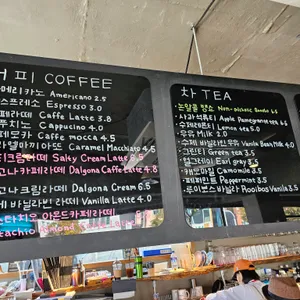 커피 COFFEE
아메리카노 Americano 2.5
에스프레소 Espresso 3.0
카페라떼 Caffe Latte 3.8
카푸치노 Cappucino 4.0
카페모카 Caffe mocca 4.5
카라멜마끼아또 Caramel Macchiato 4.5
솔티크림라떼 Salty Cream Latte
달고나 카페라떼 Dalgona Caffe Latte 4.8
달고나크림라떼 Dalgona Cream 6.5
바닐라빈라떼 Vanilla Latte 4.0
피스타치오 아몬드카페라떼
Pistachio Almond
차 TEA
논알콜 Non-alcoholic
사과석류티 Apple Pomegranate tea 6.5
수제레몬티 Lemon tea 5.0
우유 Milk 2.0
수제 바닐라빈우유 Vanilla Bean Milk 4.0
그린티 Green tea 3.5
얼그레이 Earl gray 3.5
캐모마일 Camomile 3.5
페퍼민트 Peppermint 3.5
루이보스바닐라 Rooibos Vanilla 3.5